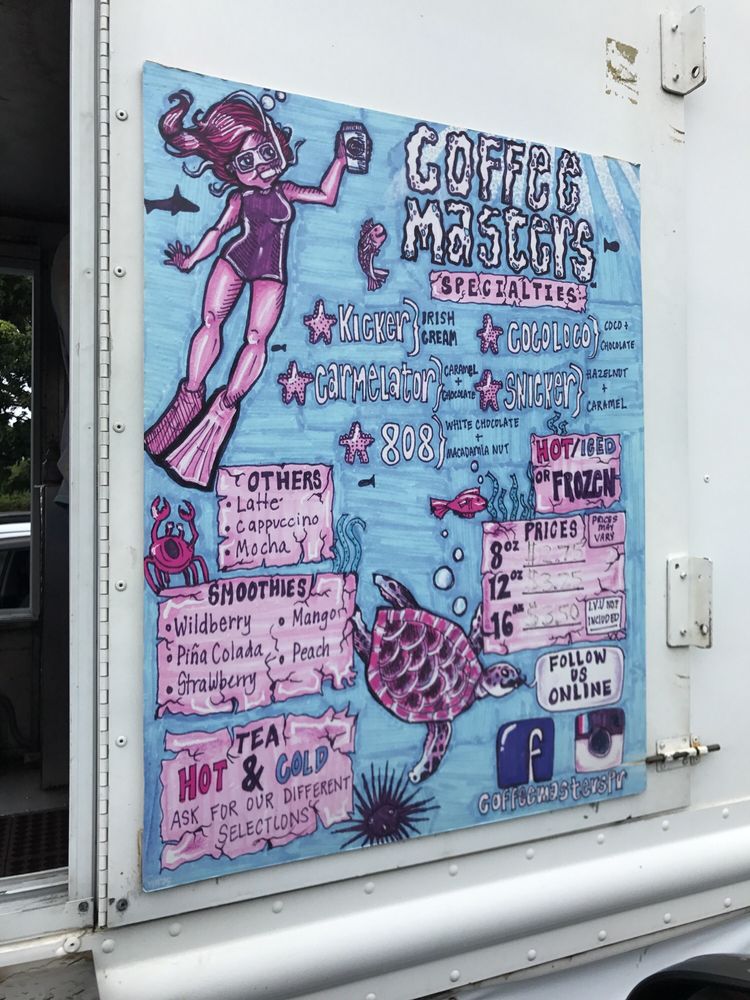 COFFEE
MASTERS
SPECIALTIES
KICKER} IRISH CREAM
COCOLOCO} COCO + CHOCOLATE
CARMELATOR} CARAMEL + CHOCOLATE
SNICKER} HAZELNUT + CARAMEL
808} WHITE CHOCOLATE + MACADAMIA NUT
HOT/ICED
OR FROZEN
OTHERS
• Latte
• Cappuccino
• Mocha
PRICES
PRICES MAY VARY
8oz
12oz $3.25
16oz $3.50
I.V.U NOT INCLUDED
SMOOTHIES
• Wildberry
• Mango
• Piña Colada
• Peach
• Strawberry
FOLLOW
US
ONLINE
f
coffeemasterspr
TEA
HOT & COLD
ASK FOR OUR DIFFERENT
SELECTIONS